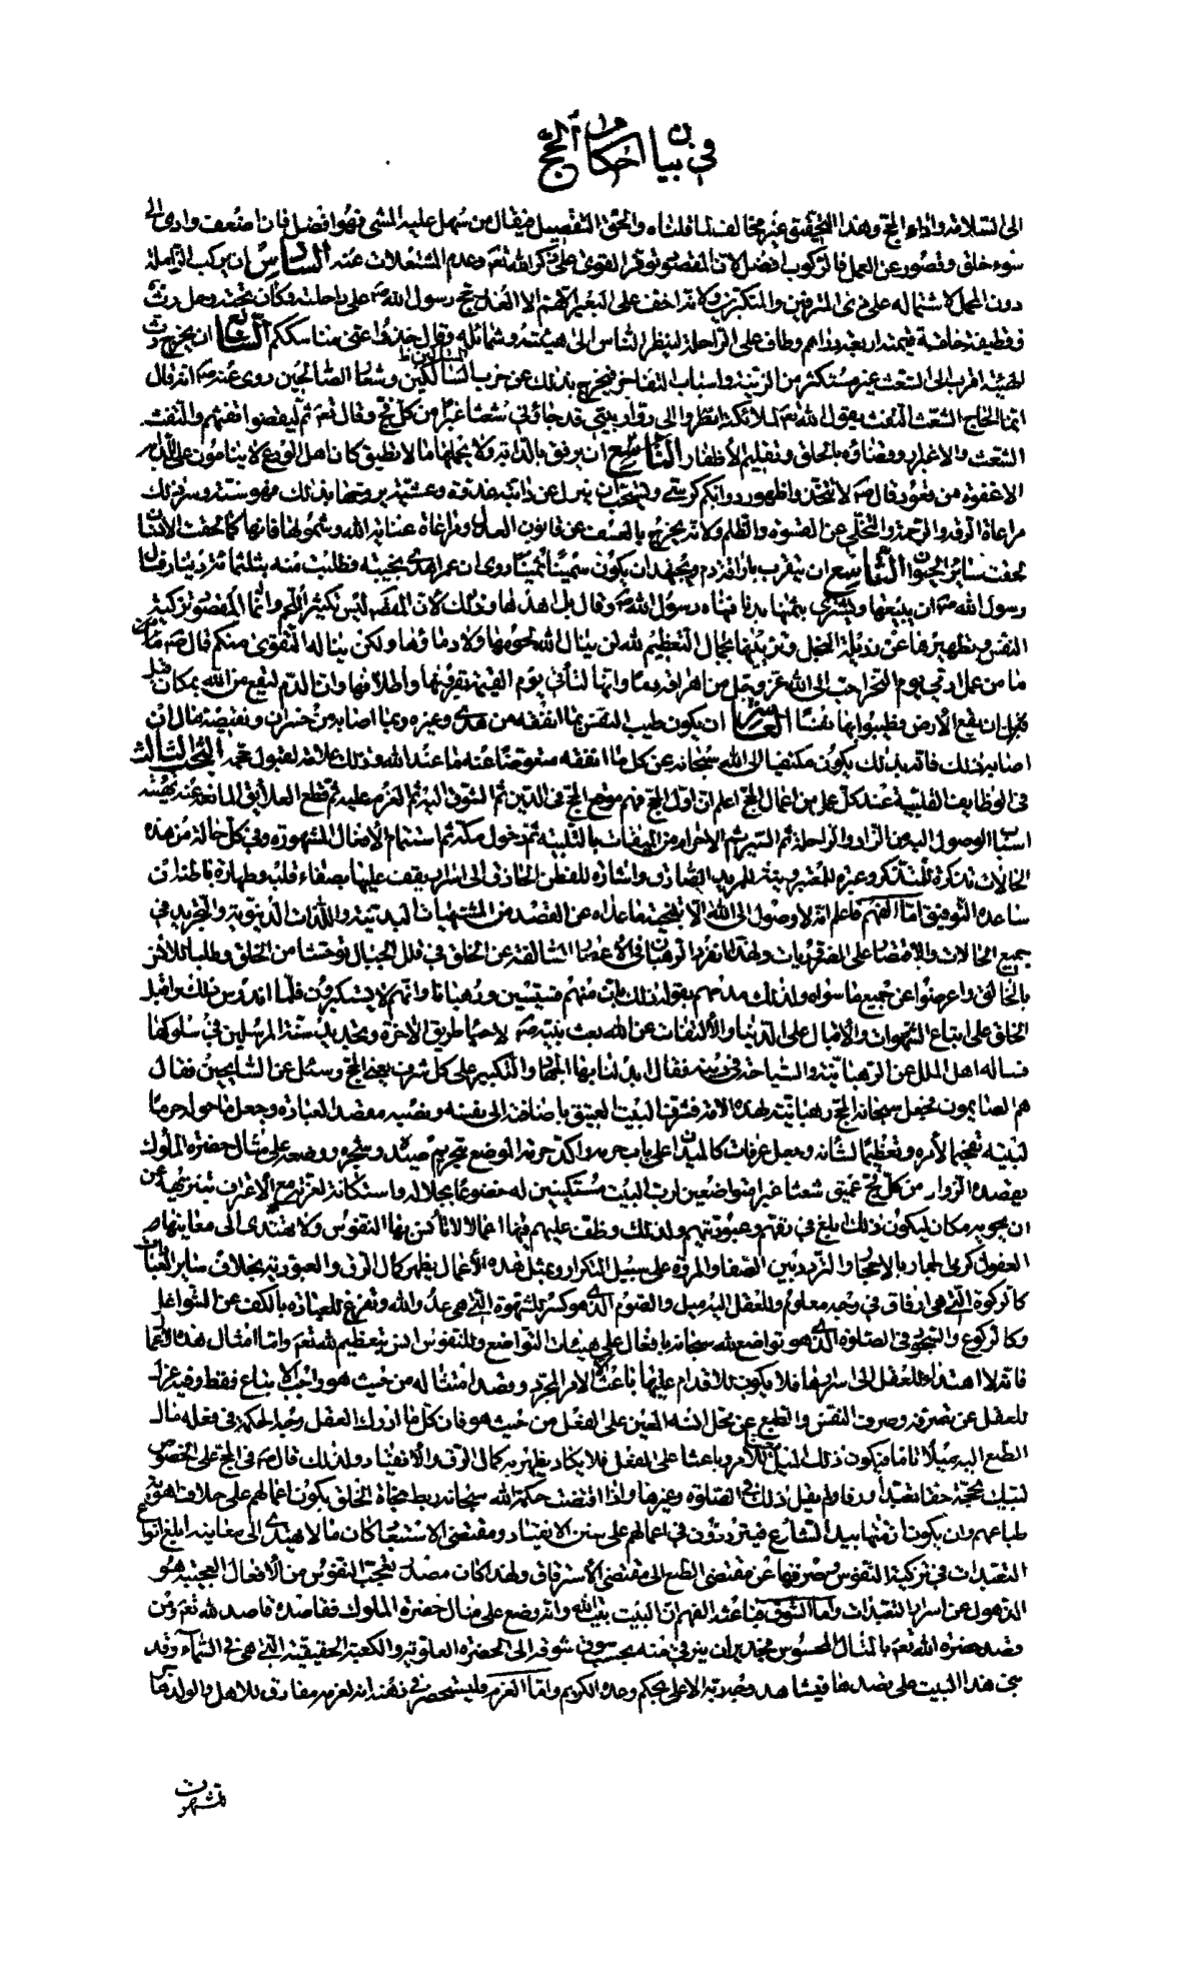 في بيان احكام الحج
الى السلامة واداء الحج وهذا التحقيق غير مخالف لما قلناه والحق التفصيل فيقال من سهل عليه المشى فهو افضل فان اضعف وادى الى
سوء خلق وقصور عن العمل فالركوب افضل لان المقصود توفر القوى على ذكر الله تعالى وعدم المشتغلات عنه السادس ان يركب الزاملة
دون المحمل لاشتماله على زى المترفين والمتكبرين ولانه اخف على البعير اللهم الا لعذر حج رسول الله ص على راحلته وكان تحته رحل رث
وقطيفة خلقة قيمته اربعة دراهم وطاف على الراحلة لينظر الناس الى هيئته وشمائله وقال خذوا عنى مناسككم السابع ان يخرج رث
الهيئة اقرب الى الشعث غير مستكثر من الزينة واسباب التفاخر فيخرج بذلك عن حزب السالكين وشعار الصالحين روى عنه ص انه قال
انما الحاج الشعث التفث يقول الله تعالى لملائكته انظروا الى زوار بيتى قد جاؤنى شعثا غبرا من كل فج وقال تعالى ثم ليقضوا تفثهم والتفث
الشعث والاغبرار وقضاؤه بالحلق وتقليم الأظفار الثامن ان يرفق بالدابة ولا يحملها ما لا تطيق كان اهل الورع لا ينامون على الدابة
الا غفوة من قعود قال ص لا تتخذوا ظهور دوابكم كراسى ويستحب ان ينزل عن دابته غدوة وعشية يروحها بذلك فهو سنة وسر ذلك
مراعاة الرقة والرحمة والتخلى عن القسوة والظلم ولانه يخرج بالعسف عن قانون العدل ومراعاة عناية الله وشمولها فانها كما لحقت الانسان
لحقت سائر الحيوان التاسع ان يتقرب باراقة دم ويجتهد ان يكون سمينا ثمينا روى ان عمر اهدى نجيبة فطلبت منه بثلثمائة دينار فسال
رسول الله ص ان يبيعها ويشترى بثمنها بدنا فنهاه رسول الله ص وقال بل اهدها وذلك لان المقصد ليس تكثير اللحم وانما المقصود تزكية
النفس وتطهيرها عن رذيلة البخل وتزيينها بجمال التعظيم لله لن ينال الله لحومها ولا دماؤها ولكن يناله التقوى منكم قال ص
ما من عمل ادمى يوم النحر احب الى الله عز وجل من اهراقه دما وانها لتأتى يوم القيمة بقرونها واظلافها وان الدم ليقع من الله بمكان قبل
ان يقع الأرض فطيبوا بها نفسا العاشر ان يكون طيب النفس بما انفقه من هدى وغيره وبما اصابه من خسران ونقيصة مال ان
اصابه ذلك فانه بذلك يكون مكتفيا الى الله سبحانه عن كل ما انفقه متعوضا عنه ما عند الله وذلك علامة لقبول حجه البحث الثالث
فى الوظايف القلبية عند كل عمل من اعمال الحج اعلم ان اول الحج فهم موقع الحج فى الدين ثم الشوق اليه ثم العزم عليه ثم قطع العلائق المانعة عنه ثم تهيئة
اسباب الوصول اليه من الزاد والراحلة ثم السير ثم الاحرام من الميقات بالتلبية ثم دخول مكة ثم استتمام الافعال المشهورة وفى كل حالة من هذه
الحالات تذكرة للمتذكر وعبرة للمعتبر ونية للمريد الصادق واشارة للفطن الحاذق الى اسرار يقف عليها بصفاء قلبه وطهارة باطنه ان
ساعده التوفيق اما الفهم فاعلم انه لا وصول الى الله الا بتنحية ما عداه عن القصد من المشتهيات البدنية واللذات الدنيوية والتجريد فى
جميع الحالات والاقتصار على الضروريات ولهذا انفرد الرهبان فى الأعصار السالفة عن الخلق فى قلل الجبال توحشا من الخلق وطلبا للانس
بالخالق واعرضوا عن جميع ما سواه ولذلك مدحهم بقوله ذلك بان منهم قسيسين ورهبانا وانهم لا يستكبرون فلما اندرس ذلك واقبل
الخلق على اتباع الشهوات والاقبال على الدنيا والالتفات عن الله بعث نبيه ص لاحياء طريق الآخرة وتجديد سنة المرسلين فى سلوكها
فساله اهل الملل عن الرهبانية والسياحة فى دينه فقال ابدلنا بها الجهاد والتكبير على كل شرف يعنى الحج وسئل عن السايحين فقال
هم الصايمون فجعل سبحانه الحج رهبانية لهذه الامة فشرف البيت العتيق باضافته الى نفسه ونصبه مقصدا لعباده وجعل ما حوله حرما
لبيته تفخيما لأمره وتعظيما لشأنه وجعل عرفات كالميدان على باب حرمه واكد حرمة الموضع بتحريم صيده وشجره ووضعه على مثال حضرة الملوك
يقصده الزوار من كل فج عميق شعثا غبرا متواضعين لرب البيت مستكينين له خضوعا لجلاله واستكانة لعزته مع الاعتراف بتنزيهه عن
ان يحويه مكان ليكون ذلك ابلغ فى رقهم وعبوديتهم ولذلك وظف عليهم فيها اعمالا لا تأنس بها النفوس ولا تهتدى الى معانيها
العقول كرمى الجمار بالاحجار والتردد بين الصفا والمروة على سبيل التكرار وبمثل هذه الأعمال يظهر كمال الرق والعبودية بخلاف ساير العبادات
كالزكوة التى هى ارفاق فى وجه معلوم وللعقل اليه ميل والصوم الذى هو كسر للشهوة التى هى عدو الله وتفرغ للعبادة بالكف عن الشواغل
وكالركوع والسجود فى الصلوة الذى هو تواضع لله سبحانه بافعال على هيئات التواضع وللنفوس انس بتعظيم الله تعالى واما امثال هذه الاعمال
فانه لا اهتداء للعقل الى اسرارها فلا يكون للاقدام عليها باعث الا الامر المجرد وقصد امتثاله من حيث هو واجب الاتباع فقط وفيه عزل
للعقل عن تصرفه وصرف النفس والطبع عن محل انسه المعين على الفعل من حيث هو فان كل ما ادرك العقل وجه الحكمة فى فعله مال
الطبع اليه ميلا تاما فيكون ذلك الميل معينا للامر وباعثا على الفعل فلا يكاد يظهر به كمال الرق والانقياد ولذلك قال ص فى الحج على الخصوص
لبيك بحجة حقا تعبدا ورقا ولم يقل ذلك فى الصلوة وغيرها واذا اقتضت حكمة الله سبحانه ربط نجاة الخلق بكون اعمالهم على خلاف اهوية
طباعهم وان يكون ازمتها بيد الشارع فيترددون فى اعمالهم على سنن الانقياد ومقتضى الاستعباد كان ما لا يهتدى الى معانيه ابلغ انواع
التعبدات فى تزكية النفوس وصرفها عن مقتضى الطبع الى مقتضى الأسترقاق ولهذا كان مصدر تعجب النفوس من الأفعال العجيبة هو
الذهول عن اسرار التعبدات واما الشوق فباعثه الفهم ان البيت بيت الله وانه وضع على مثال حضرة الملوك فقاصده قاصد لله تعالى ومن
قصد حضرة الله تعالى بالمثال المحسوس فجدير ان يترقى منه بحسب شوقه الى الحضرة العلوية والكعبة الحقيقية التى هى فى السماء وقد
بنى هذا البيت على قصدها فيشاهد وجه ربه الأعلى بحكم وعده الكريم واما العزم فليستحضر فى ذهنه انه بعزمه مفارق للاهل والولد هاجر
للشهوات